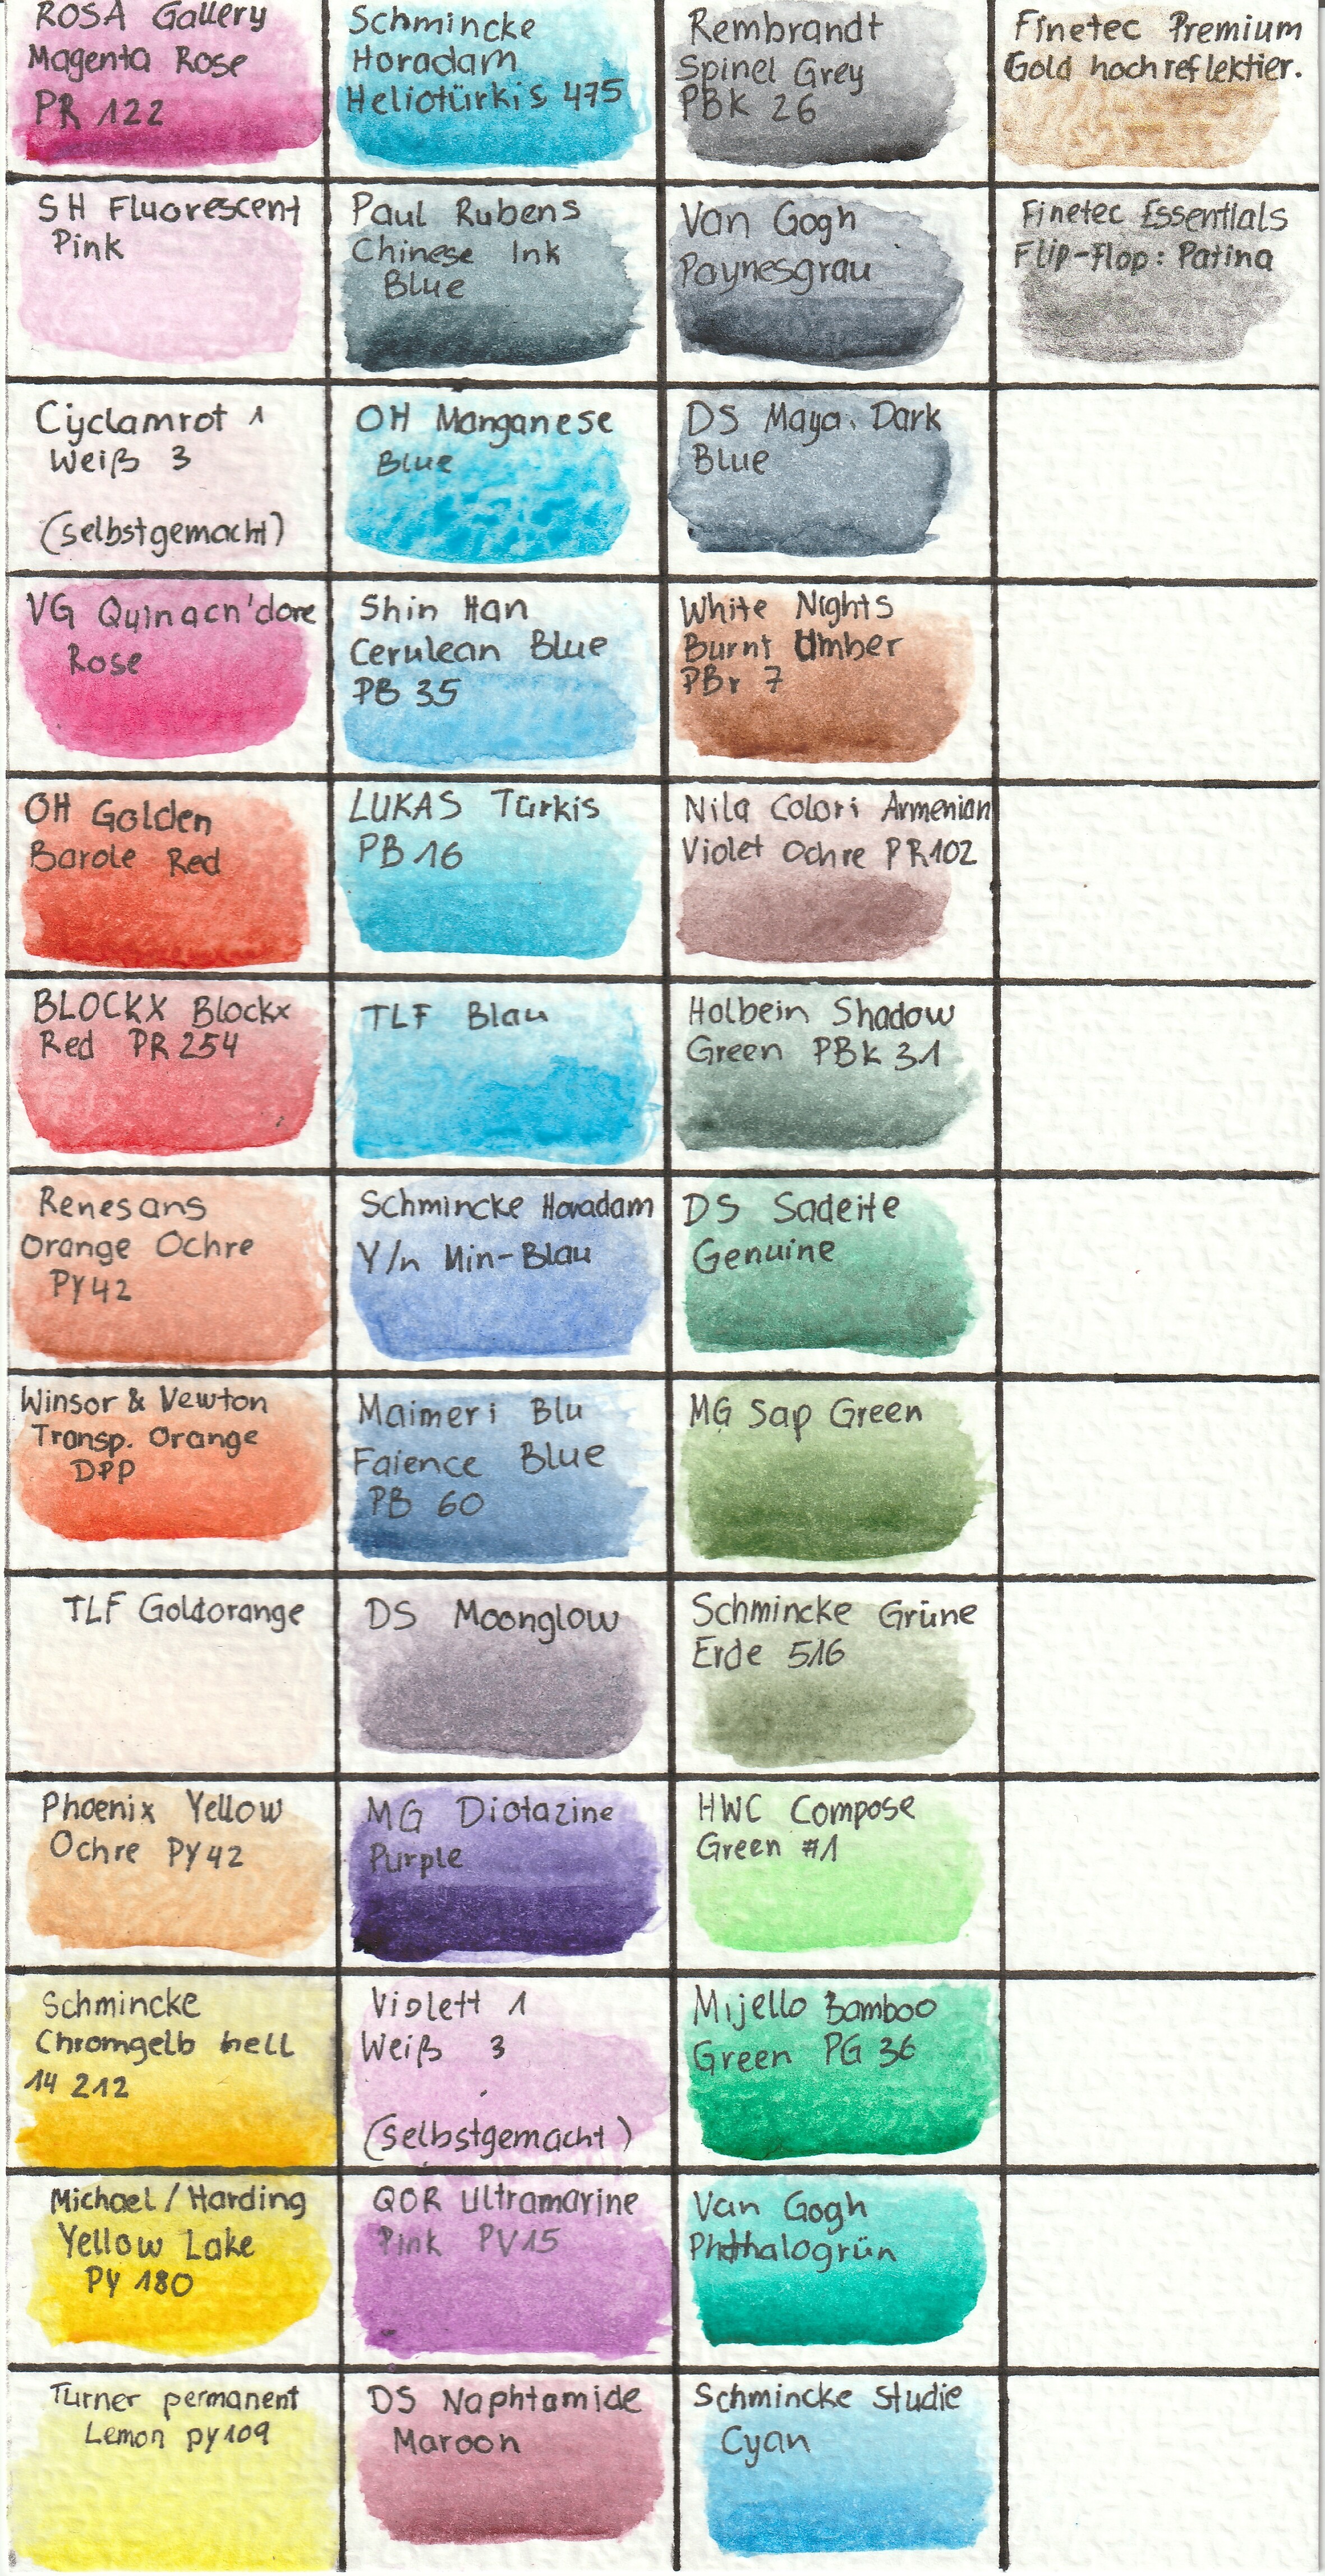 ROSA Gallery
Magenta Rose
PR 122
Schmincke
Horadam
Heliotürkis 475
Rembrandt
Spinel Grey
PBk 26
Finetec Premium
Gold hochreflektier.
SH Fluorescent
Pink
Paul Rubens
Chinese Ink
Blue
Van Gogh
Paynesgrau
Finetec Essentials
Flip-Flop: Patina
Cyclamrot 1
Weiß 3
(selbstgemacht)
OH Manganese
Blue
DS Maya. Dark
Blue
VG Quinacn'done
Rose
Shin Han
Cerulean Blue
PB 35
White Nights
Burnt Umber
PBr 7
OH Golden
Barole Red
LUKAS Türkis
PB 16
Nila Colori Armenian
Violet Ochre PR102
BLOCKX Blockx
Red PR 254
TLF Blau
Holbein Shadow
Green PBk 31
Renesans
Orange Ochre
PY42
Schmincke Horadam
Y/n Min-Blau
DS Sadeite
Genuine
Winsor & Newton
Transp. Orange
DPP
Maimeri Blu
Faience Blue
PB 60
MG Sap Green
TLF Goldorange
DS Moonglow
Schmincke Grüne
Erde 516
Phoenix Yellow
Ochre PY42
MG Diotazine
Purple
HWC Compose
Green #1
Schmincke
Chromgelb hell
14 212
Violett 1
Weiß 3
(selbstgemacht)
Mijello Bamboo
Green PG 36
Michael/Harding
Yellow Lake
PY 180
QOR Ultramarine
Pink PV15
Van Gogh
Phthalogrün
Turner permanent
Lemon py109
DS Naphtamide
Maroon
Schmincke Studie
Cyan